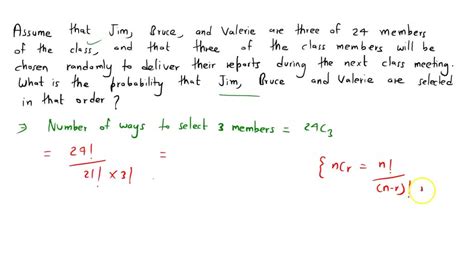 Assume that Jim, Bruce, and Valerie are three of 24 members
of the class, and that three of the class members will be
chosen randomly to deliver their reports during the next class meeting.
What is the probability that Jim, Bruce and Valerie are selected
in that order ?
⇒ Number of ways to select 3 members = 24C3
= 24! / 21! × 3! =
{ nCr = n! / (n-r)!